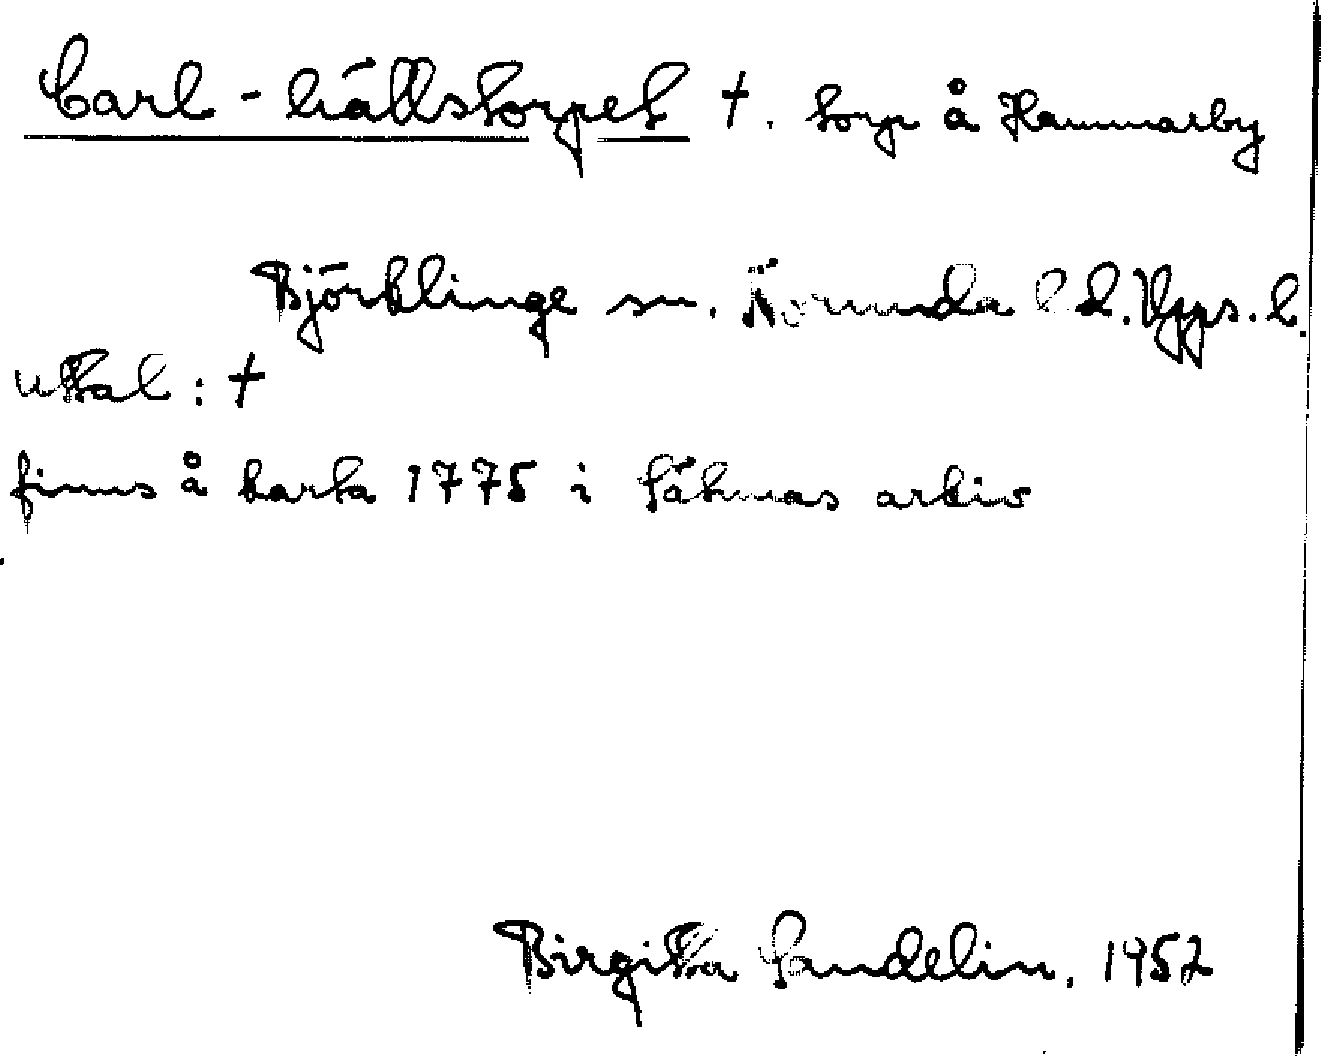 Carl-källstorpet †. torp å Hammarby
Björklinge sn. Norunda l d. Upps. l.
uttal: †
finns å karta 1775 i Sätunas arkiv
Birgitta Sandelin, 1952